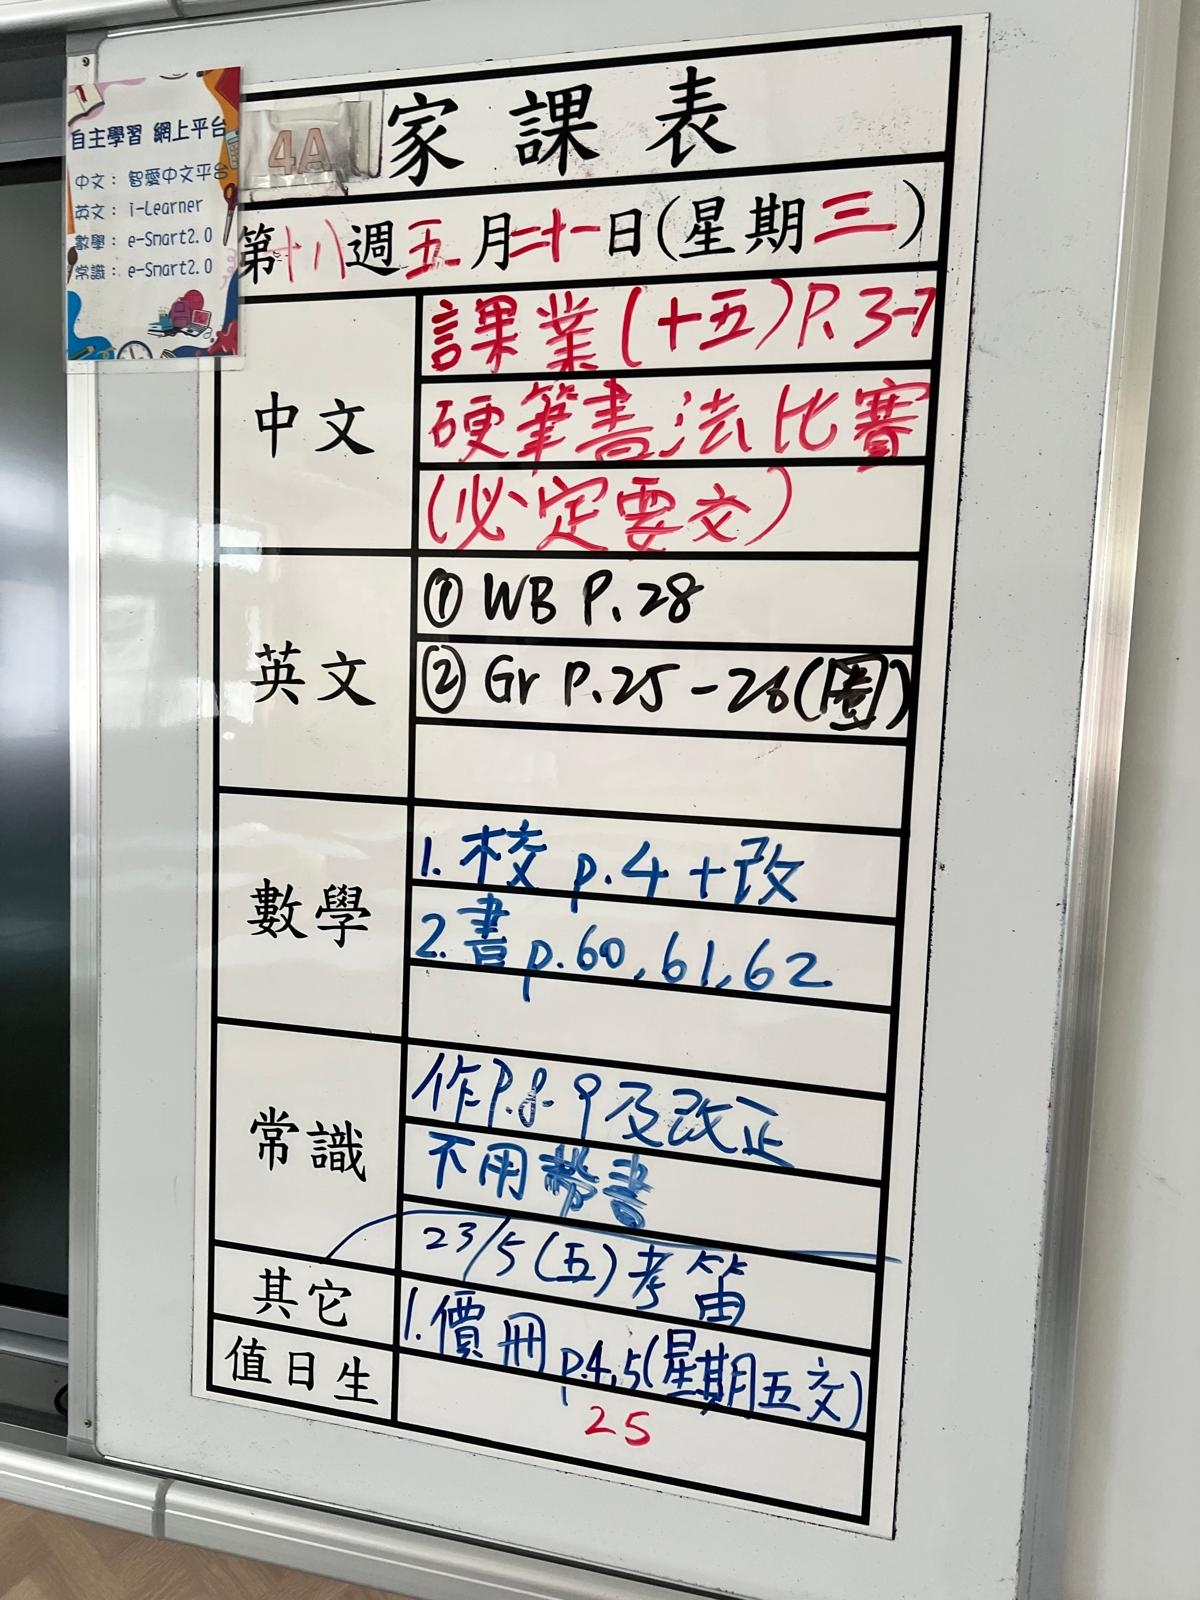 自主學習 網上平台
中文： 智愛中文平台
英文： i-Learner
數學： e-Smart2.0
常識： e-Smart2.0
4A 家課表
第十八週五月二十一日(星期三)
中文
課業(十五)P.3-7
硬筆書法比賽
(必定要交)
英文
① WB P.28
② Gr P.25-26(圈)
數學
1. 校 p.4+改
2. 書 p.60,61,62
常識
作P.8-9及改正
不用帶書
23/5(五)考笛
其它
1. 價冊 p.4,5(星期五交)
值日生
25